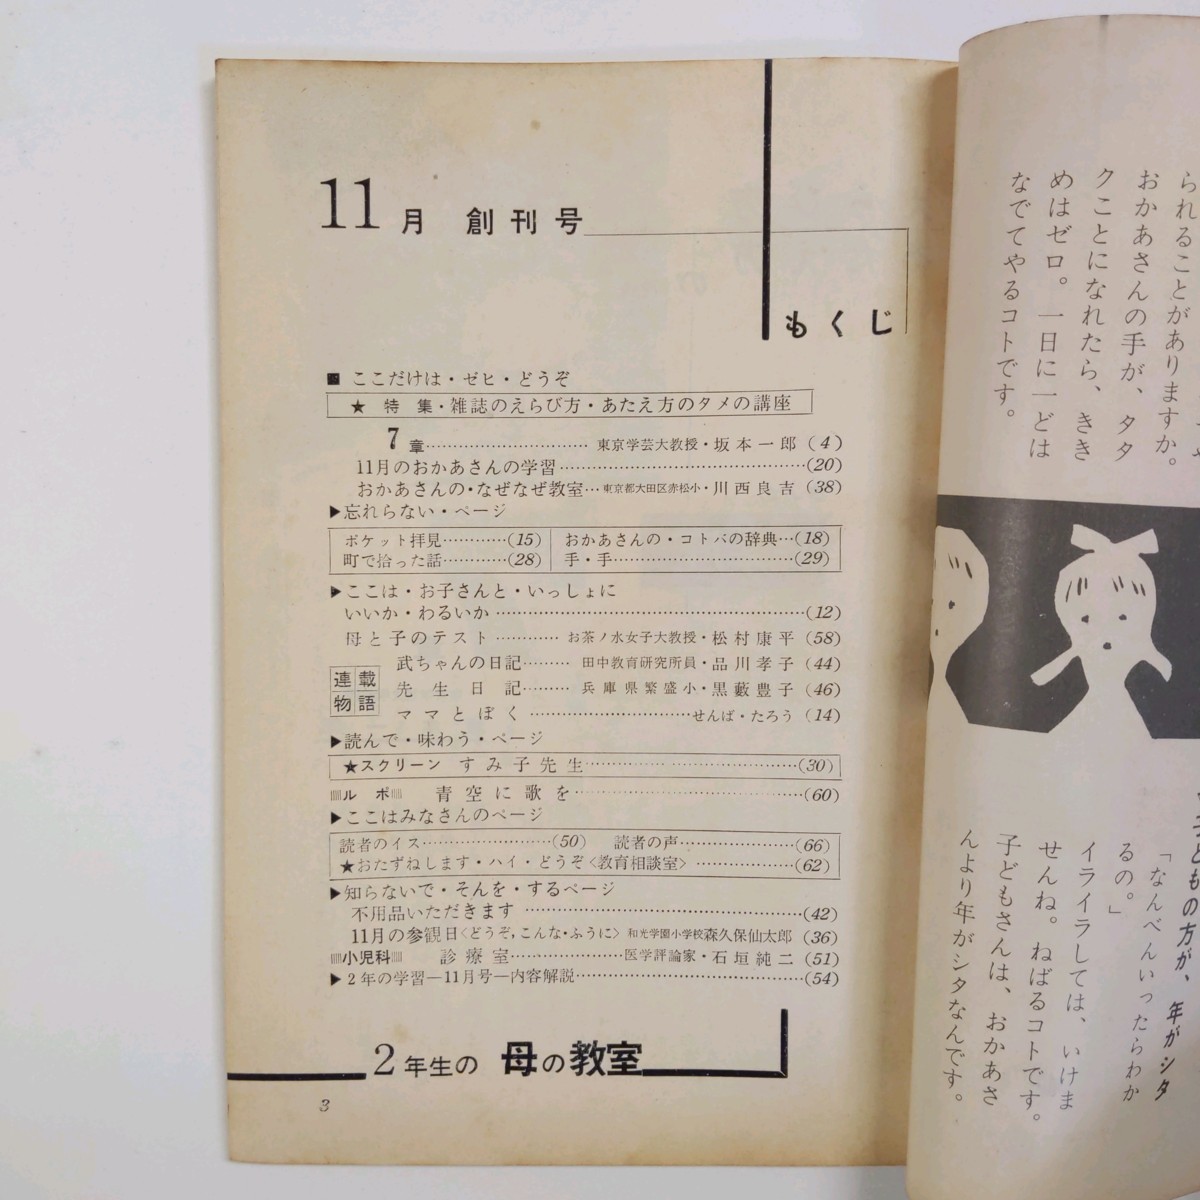 11月 創刊号
もくじ
■ ここだけは・ゼヒ・どうぞ
★ 特集・雑誌のえらび方・あたえ方のタメの講座
7章…………………………東京学芸大教授・坂本一郎(4)
11月のおかあさんの学習……………………………………(20)
おかあさんの・なぜなぜ教室…東京都大田区赤松小・川西良吉(38)
▶忘れらない・ページ
ポケット拝見…………(15) おかあさんの・コトバの辞典…(18)
町で拾った話…………(28) 手・手……………………………(29)
▶ここは・お子さんと・いっしょに
いいか・わるいか………………………………………………(12)
母と子のテスト…………お茶ノ水女子大教授・松村康平(58)
連載物語
武ちゃんの日記………田中教育研究所員・品川孝子(44)
先生日記………兵庫県繁盛小・黒藪豊子(46)
ママとぼく…………………………せんば・たろう(14)
▶読んで・味わう・ページ
★スクリーン すみ子先生…………………………………(30)
ルポ 青空に歌を……………………………………(60)
▶ここはみなさんのページ
読者のイス……………………(50) 読者の声…………………(66)
★おたずねします・ハイ・どうぞ〈教育相談室〉………………(62)
▶知らないで・そんを・するページ
不用品いただきます……………………………………………(42)
11月の参観日〈どうぞ,こんな・ふうに〉和光学園小学校森久保仙太郎(36)
小児科 診療室…………………医学評論家・石垣純二(51)
▶2年の学習―11月号―内容解説……………………………………(54)
2年生の 母の教室
3
られることがありますか。
おかあさんの手が、タタ
クことになれたら、きき
めはゼロ。一日に一どは
なでてやるコトです。
子どもの方が、年がシタ
「なんべんいったらわか
るの。」
イライラしては、いけま
せんね。ねばるコトです。
子どもさんは、おかあさ
んより年がシタなんです。